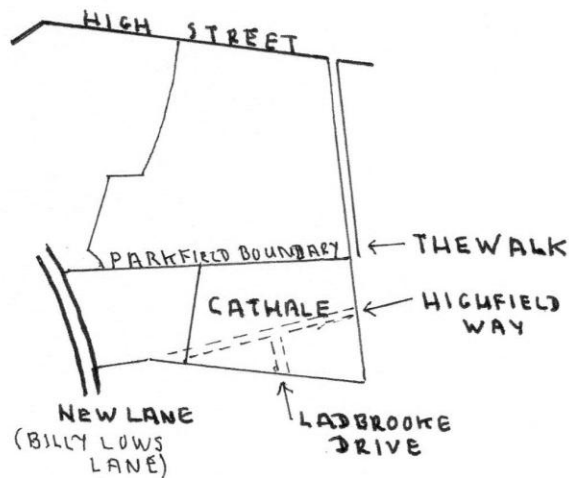 HIGH STREET
PARKFIELD BOUNDARY
THE WALK
CATHALE
HIGHFIELD
WAY
NEW LANE
(BILLY LOWS
LANE)
LADBROOKE
DRIVE